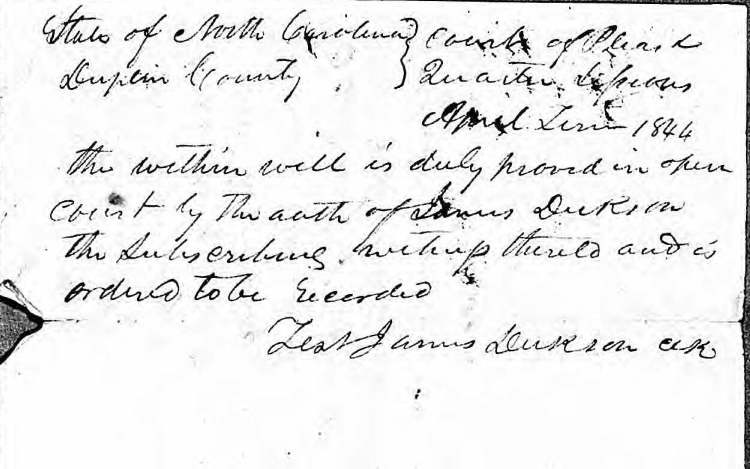 State of North Carolina } Court of Pleas &
Duplin County } Quarter Sessions
April Term 1844
the within will is duly proved in open
Court by the oath of James Dickson
the Subscribing witness thereto and is
ordered to be Recorded
Test James Dickson clk